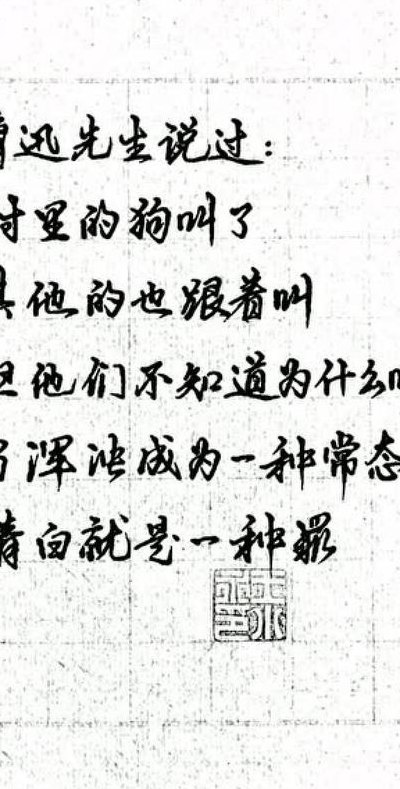 鲁迅先生说过：
村里的狗叫了
其他的也跟着叫
但他们不知道为什么叫
当浑浊成为一种常态
清白就是一种罪